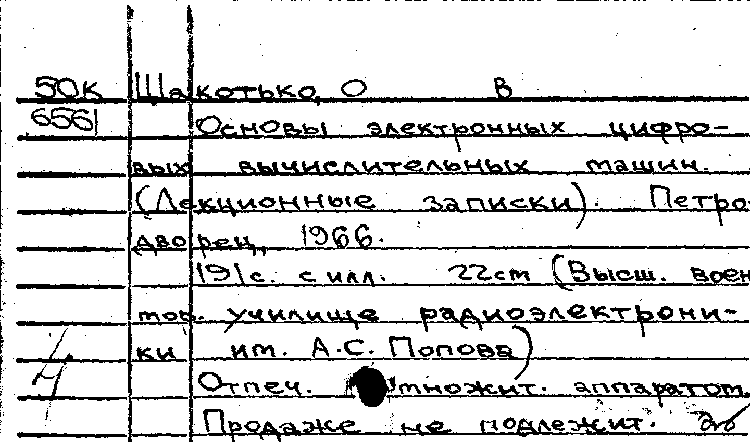 50К Шакотько, О В
6561 Основы электронных цифро-
вых вычислительных машин.
(Лекционные записки). Петро
дворец, 1966.
191с. с илл. 22см (Высш. воен
мор. училище радиоэлектрони-
ки им. А.С. Попова)
4 Отпеч. множит. аппаратом.
Продаже не подлежит.